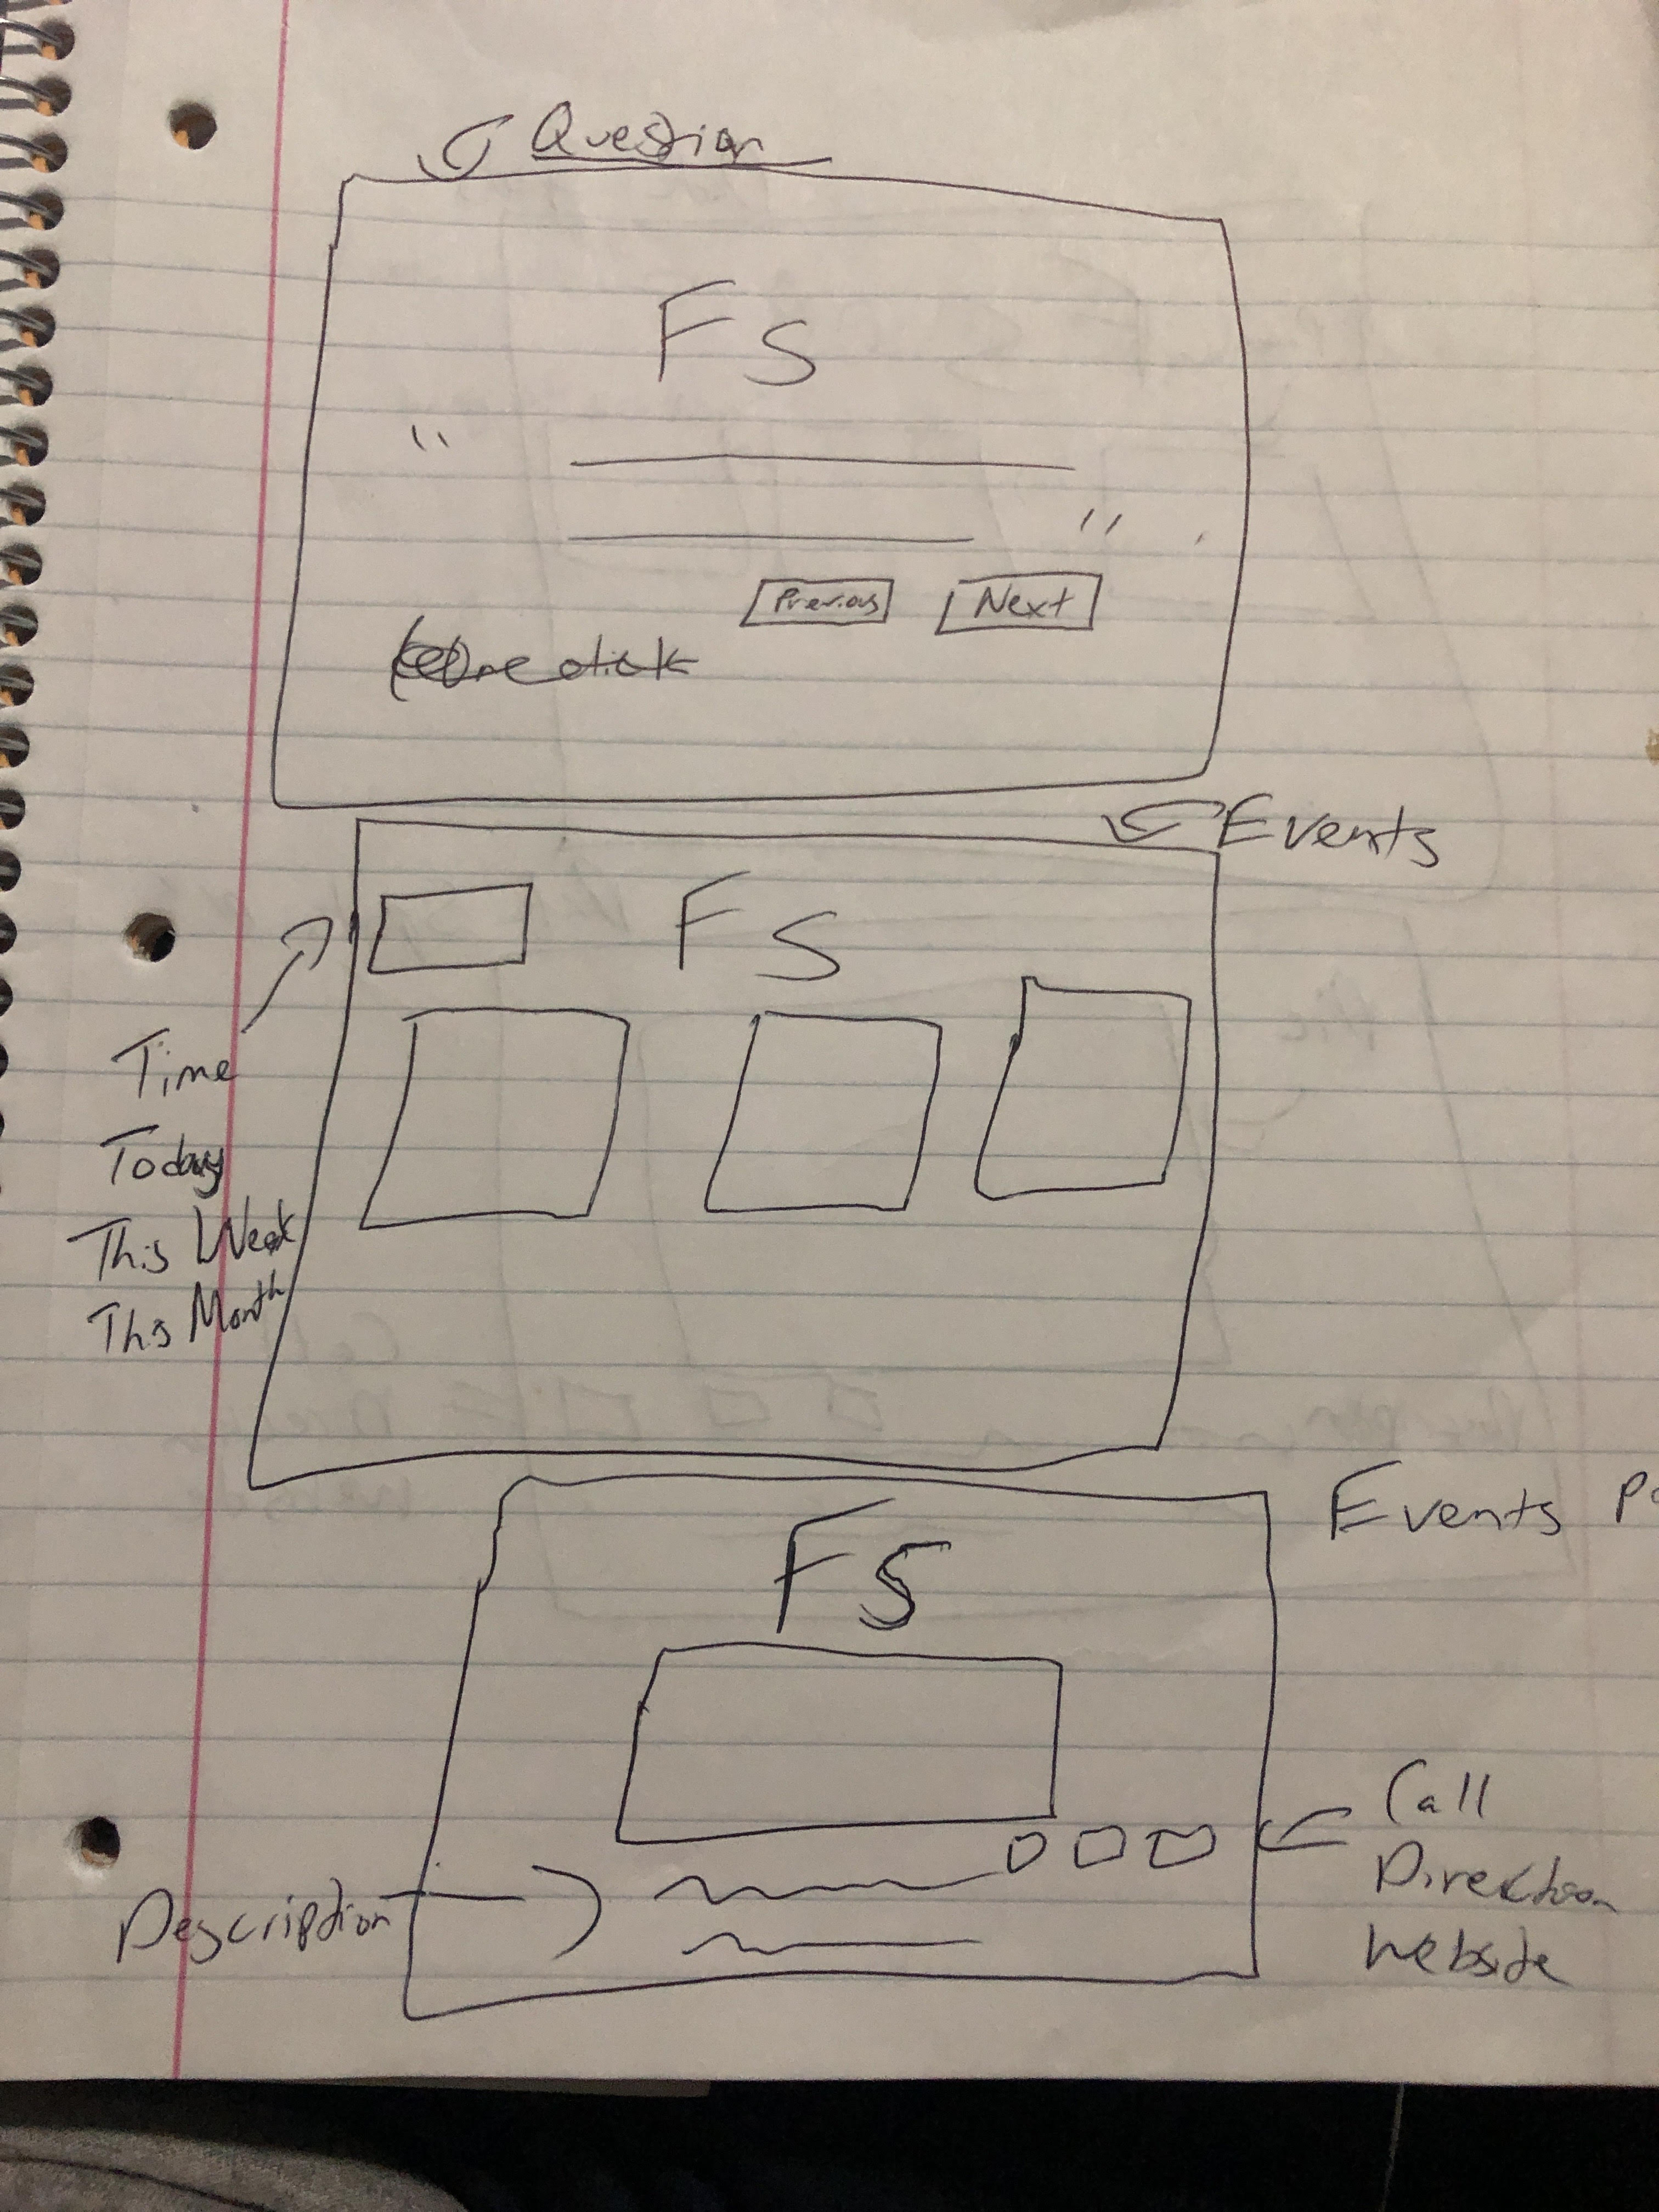 Question
FS
"
"
Previous Next
Events
FS
Time
Today
This Week
This Month
Events
FS
Call
Direction
Website
Description